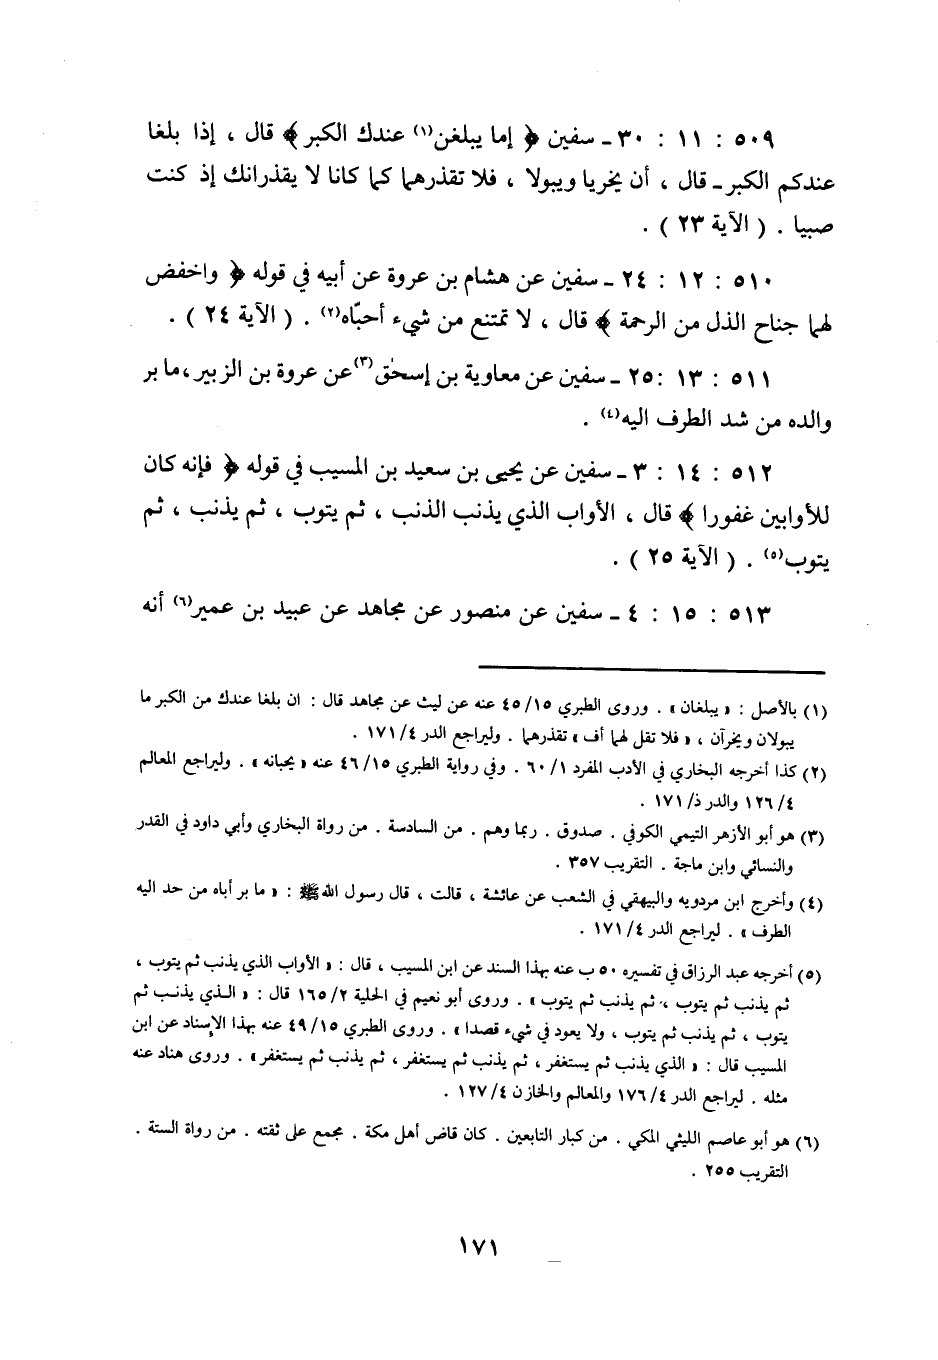 ٥٠٩ : ١١ : ٣٠ ـ سفين ﴿ إما يبلغن(١) عندك الكبر ﴾ قال ، إذا بلغا
عندكم الكبر ـ قال ، أن يخريا ويبولا ، فلا تقذرهما كما كانا لا يقذرانك إذ كنت
صبيا . ( الآية ٢٣ ) .
٥١٠ : ١٢ : ٢٤ ـ سفين عن هشام بن عروة عن أبيه في قوله ﴿ واخفض
لهما جناح الذل من الرحمة ﴾ قال ، لا تمتنع من شيء أحبّاه(٢) . ( الآية ٢٤ ) .
٥١١ : ١٣ :٢٥ ـ سفين عن معاوية بن إسحٰق(٣) عن عروة بن الزبير ، ما بر
والده من شد الطرف اليه(٤) .
٥١٢ : ١٤ : ٣ ـ سفين عن يحيى بن سعيد بن المسيب في قوله ﴿ فإنه كان
للأوابين غفورا ﴾ قال ، الأواب الذي يذنب الذنب ، ثم يتوب ، ثم يذنب ، ثم
يتوب(٥) . ( الآية ٢٥ ) .
٥١٣ : ١٥ : ٤ ـ سفين عن منصور عن مجاهد عن عبيد بن عمير(٦) أنه
(١) بالأصل : « يبلغان » . وروى الطبري ٤٥/١٥ عنه عن ليث عن مجاهد قال : ان بلغا عندك من الكبر ما
يبولان ويخرآن ، « فلا تقل لهما أف » تقذرهما . وليراجع الدر ١٧١/٤ .
(٢) كذا أخرجه البخاري في الأدب المفرد ٦٠/١ . وفي رواية الطبري ٤٦/١٥ عنه « يحبانه » . وليراجع المعالم
١٢٦/٤ والدر ذ/١٧١ .
(٣) هو أبو الأزهر التيمي الكوفي . صدوق . ربما وهم . من السادسة . من رواة البخاري وأبي داود في القدر
والنسائي وابن ماجة . التقريب ٣٥٧ .
(٤) وأخرج ابن مردويه والبيهقي في الشعب عن عائشة ، قالت ، قال رسول الله ﷺ : « ما بر أباه من حد اليه
الطرف » . ليراجع الدر ١٧١/٤ .
(٥) أخرجه عبد الرزاق في تفسيره ٥٠ ب عنه بهذا السند عن ابن المسيب ، قال : « الأواب الذي يذنب ثم يتوب ،
ثم يذنب ثم يتوب ، ثم يذنب ثم يتوب » . وروى أبو نعيم في الحلية ١٦٥/٢ قال : « الذي يذنب ثم
يتوب ، ثم يذنب ثم يتوب ، ولا يعود في شيء قصدا » . وروى الطبري ٤٩/١٥ عنه بهذا الإسناد عن ابن
المسيب قال : « الذي يذنب ثم يستغفر ، ثم يذنب ثم يستغفر ، ثم يذنب ثم يستغفر » . وروى هناد عنه
مثله . ليراجع الدر ١٧٦/٤ والمعالم والخازن ١٢٧/٤ .
(٦) هو أبو عاصم الليثي المكي . من كبار التابعين . كان قاض أهل مكة . مجمع على ثقته . من رواة الستة .
التقريب ٢٥٥ .
١٧١